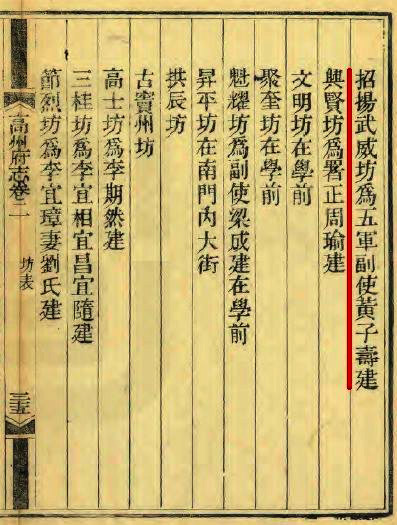 招揚武威坊爲五軍副使黃子壽建
興賢坊爲署正周瑜建
文明坊在學前
聚奎坊在學前
魁耀坊爲副使梁成建在學前
昇平坊在南門內大街
拱辰坊
古竇州坊
高士坊爲李期然建
三桂坊爲李宜相宜昌宜隨建
節烈坊爲李宜璋妻劉氏建
高州府志卷二
坊表
三五